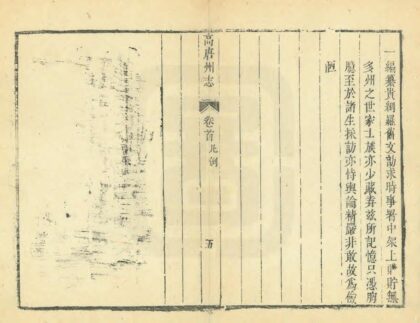 一編纂貴網羅舊文訪求時事署中架上所貯無
多州之世家士族亦少藏書茲所記憶只憑胸
臆至於諸生採訪亦恃輿論精嚴非敢故爲儉
陋
高唐州志
卷首凡例
五